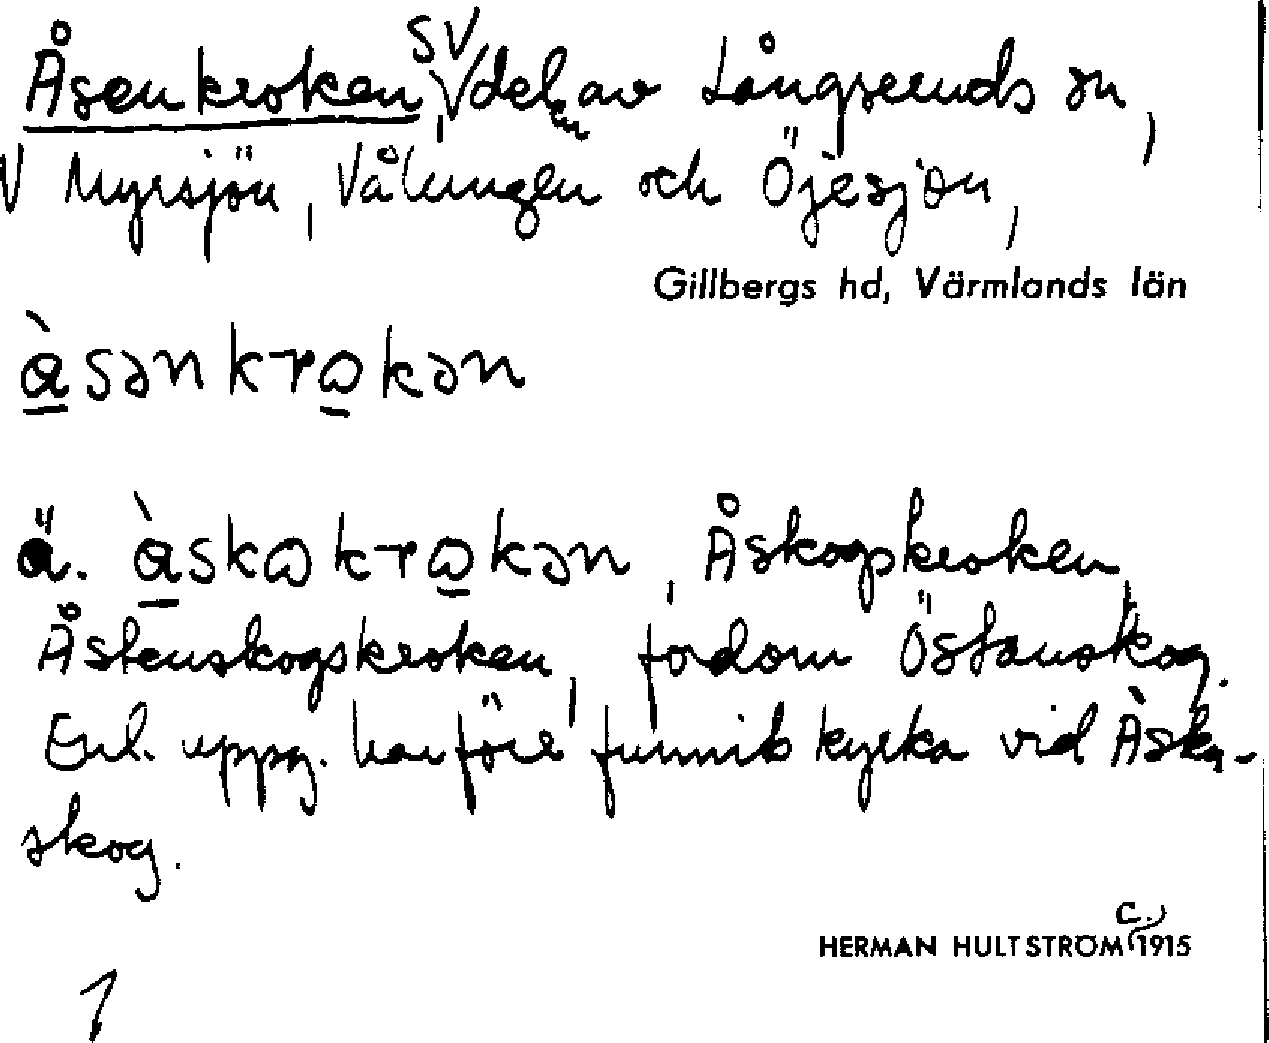 Åsenkroken, SV delen av Långseruds sn,
V Myrsjön, Vålungen och Öjesjön,
Gillbergs hd, Värmlands län
ɑ̀sən krɷkən
ä. ɑ̀skɷkrɷkən, Åskogskroken,
Åstenskogskroken, fordom Östanskog.
Enl. uppg. har före funnits kyrka vid Åska-
skog.
HERMAN HULTSTRÖM c. 1915
1